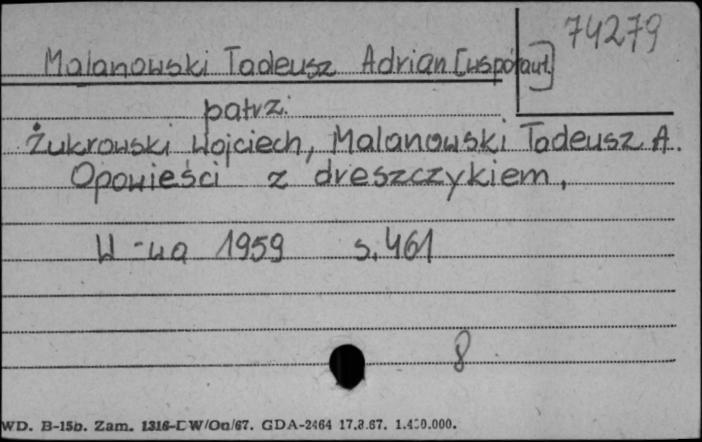 74279
Malanowski Tadeusz Adrian [współaut.]
patrz:
Żukrowski Wojciech, Malanowski Tadeusz A.
Opowieści z dreszczykiem,
W-wa 1959 s. 461
8
WD. B-15b. Zam. 1316-D W/Oa/67. GDA-2464 17.8.67.